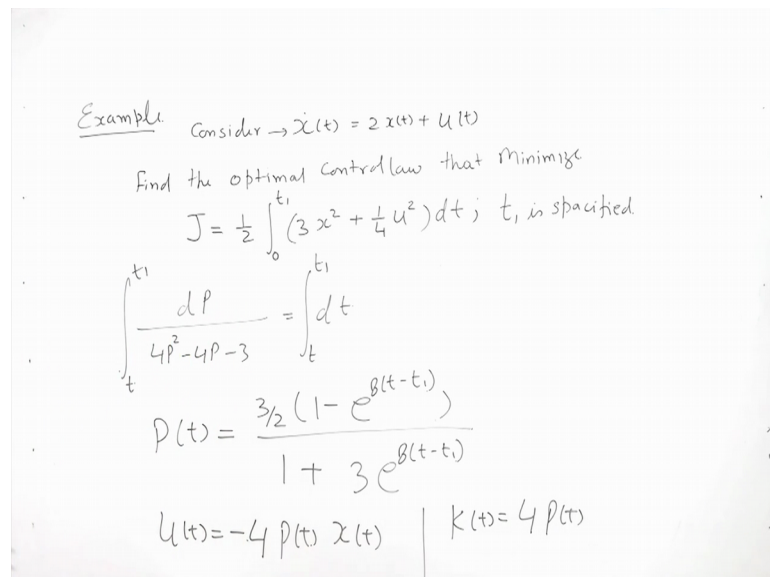 Example. Consider → ẋ(t) = 2 x(t) + u(t)
Find the optimal control law that minimize
J = 1/2 ∫₀^t₁ (3x² + 1/4 u²) dt ; t₁ is spacified.
∫ₜ^t₁ dP / (4P² - 4P - 3) = ∫ₜ^t₁ dt
P(t) = 3/2 (1 - e^8(t-t₁)) / (1 + 3e^8(t-t₁))
u(t) = -4 P(t) x(t) | K(t) = 4 P(t)